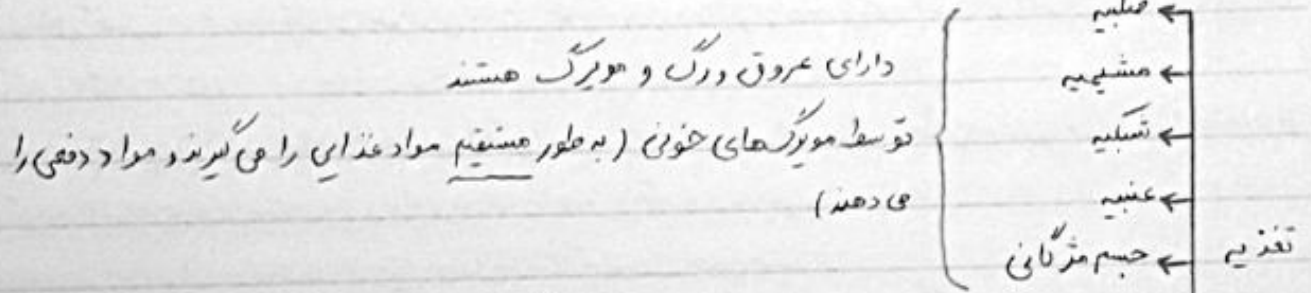 صلبیه
مشیمیه
شبکیه
عنبیه
تغذیه
جسم مژگانی
دارای عروق و رگ و مویرگ هستند
توسط مویرگ‌های خونی (به طور مستقیم مواد غذایی را می گیرند و مواد دفعی را
می دهند)